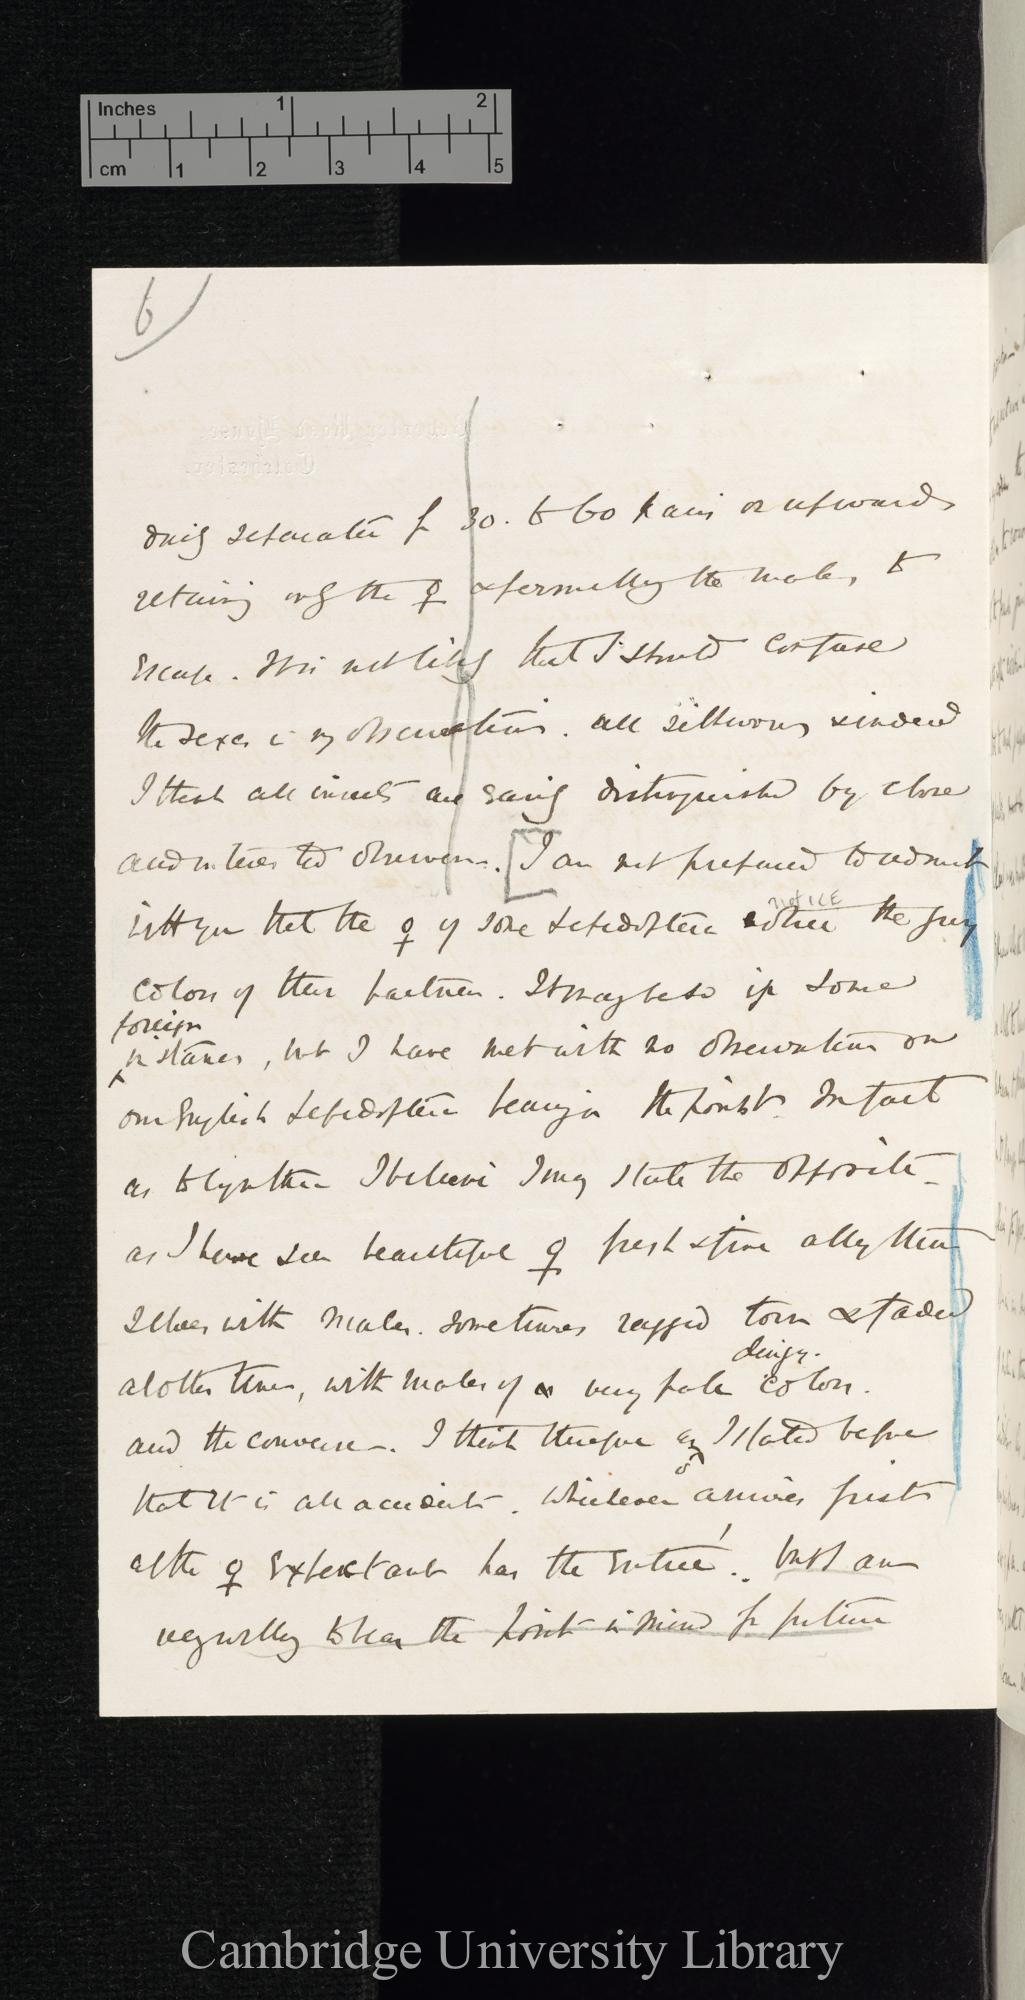 Inches 1 2
cm 1 2 3 4 5
6
Berley Ridge House.
Colchester.
daily separated f 30. to 60 pairs or upwards
retaining only the ♀ & permitting the males, to
escape. It is not likely that I should confuse
the sexes in my observations. all silkworms & indeed
I think all insects are easily distinguished by close
and interested observers. [I am not prepared to admit
with you that the ♀ of some Lepidoptera notice the gay
notice
colors of their partners. It may be so in some
foreign
instances, but I have met with no observations on
our English Lepidoptera bearing on the point. In fact
as to Cynthia I believe I may state the opposite_
as I have seen beautiful ♀ fresh & fine ally them
selves with males. sometimes ragged torn & faded
at other times, with males of very pale colors.
dingy.
and the converse. I think therefore as I stated before
that it is all accident. Whichever ♂ arrives first
at the ♀ expectant has the entreé. but I am
very willing to bear the point in mind for future
Cambridge University Library